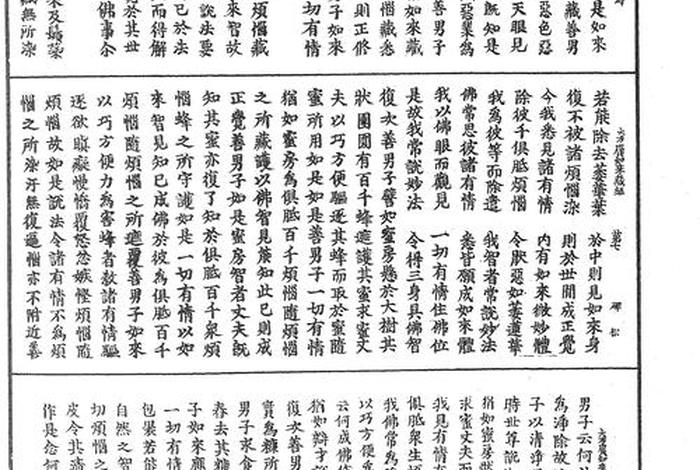 是如來
藏善男
惡色惡
天眼見
既知是
惡業為
善男子
如來藏
惱藏悉
則正修
子如來
切有情
煩惱藏
來智故
說法要
已於法
而得解
於其世
佛事尒
藏無所染
若能除去萎蓮葉 於中則見如來身
復不被諸煩惱染 則於世間成正覺
今我悉見諸有情 內有如來微妙體
除彼千俱胝煩惱 令厭惡如萎蓮華
我為彼等而除遣 我智者常說妙法
佛常思彼諸有情 悉皆願成如來體
我以佛眼而觀見 一切有情住佛位
是故我常說妙法 令得三身具佛智
復次善男子譬如蜜房懸於大樹其
狀團圓有百千蜂遮護其蜜求蜜丈
夫以巧方便驅逐其蜂而取於蜜隨
蜜所用如是如是善男子一切有情
猶如蜜房為俱胝百千煩惱隨煩惱
之所藏護以佛智見能知此已則成
正覺善男子如是蜜房智者丈夫既
知其蜜亦復了知於俱胝百千衆煩
惱蜂之所守護如是一切有情以如
來智見知已成佛於彼為俱胝百千
煩惱隨煩惱之所遮覆善男子如來
以巧方便力為害蜂者教諸有情驅
逐欲瞋癡慢憍覆忿怒嫉慳煩惱隨
煩惱故如是說法令諸有情不為煩
惱之所染汙無復逼惱亦不附近善
男子云何
為淨除故
子以清淨
時世尊說
猶如蜜房
求蜜丈夫而
我見有情
俱胝衆生煩
我佛常為
以巧方便
云何成佛
猶如辯才
復次善男
實為糠所
男子求食
舂去其糠
子如來觀
一切有情
包裹若能
自然之智
切煩惱之
皮令其
作是念何